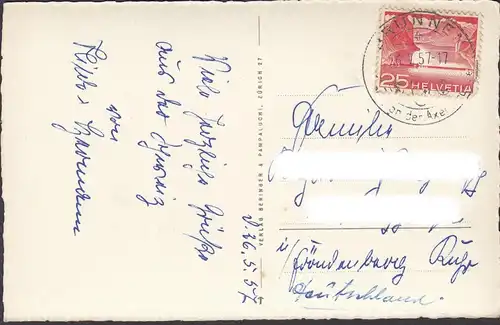 Viele herzliche Grüße
aus der Schweiz
von
d. 26.5.57
VERLAG BERINGER & PAMPALUCHI, ZÜRICH 27
BRUNNEN
57-17
an der Axen
25 HELVETIA
Familie
i/ Fröndenberg Ruhr
Deutschland